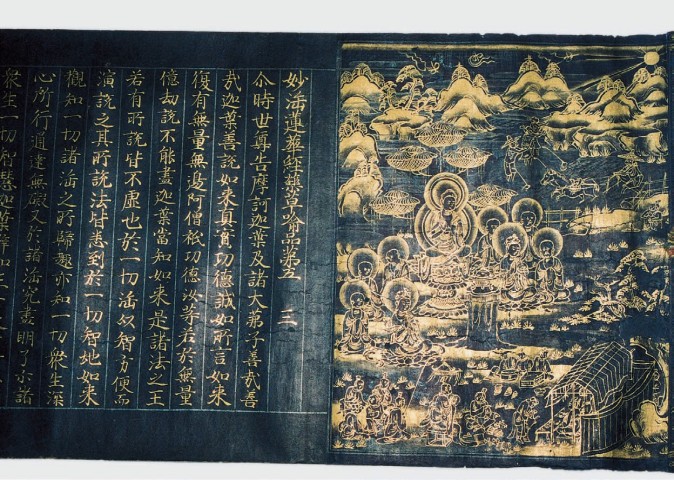 妙法蓮華經藥草喩品第五　三
尒時世尊告摩訶迦葉及諸大弟子善哉善
哉迦葉善說如來真實功德誠如所言如來
復有無量無邊阿僧祇功德汝等若於無量
億劫說不能盡迦葉當知如來是諸法之王
若有所說皆不虛也於一切法以智方便而
演說之其所說法皆悉到於一切智地如來
觀知一切諸法之所歸趣亦知一切衆生深
心所行通達無礙又於諸法究盡明了示諸
衆生一切智慧迦葉